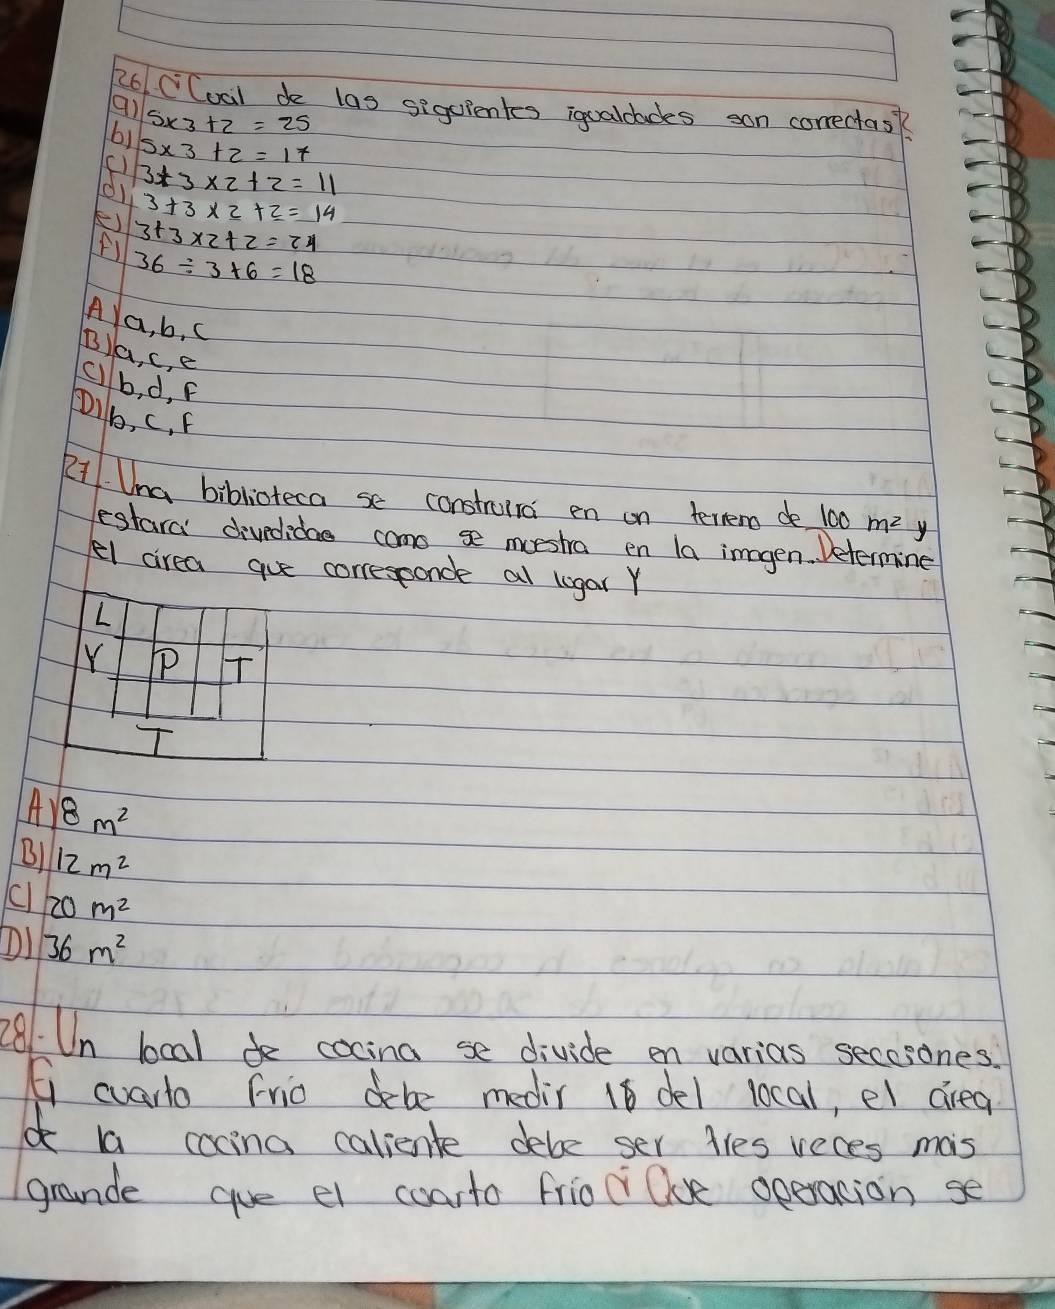 26. ¿Cual de las siguientes igualdades son correctas?
a) 5x3+2=25
b) 5x3+2=17
c) 3+3x2+2=11
d) 3+3x2+2=14
e) 3+3x2+2=24
f) 36÷3+6=18
A) a,b,c
B) a,c,e
C) b,d,f
D) b,c,f
27. Una biblioteca se construirá en un terreno de 100 m² y
estara divedidas como se muestra en la imagen. Determine
el área que corresponde al lugar Y
L
Y P T
T
A) 8 m²
B) 12 m²
C) 20 m²
D) 36 m²
28. Un local de cocina se divide en varias seccsiones.
El cuarto frio debe medir 18 del local, el área
de la cocina caliente debe ser tres veces mas
grande que el cuarto frio ¿Que operacion se